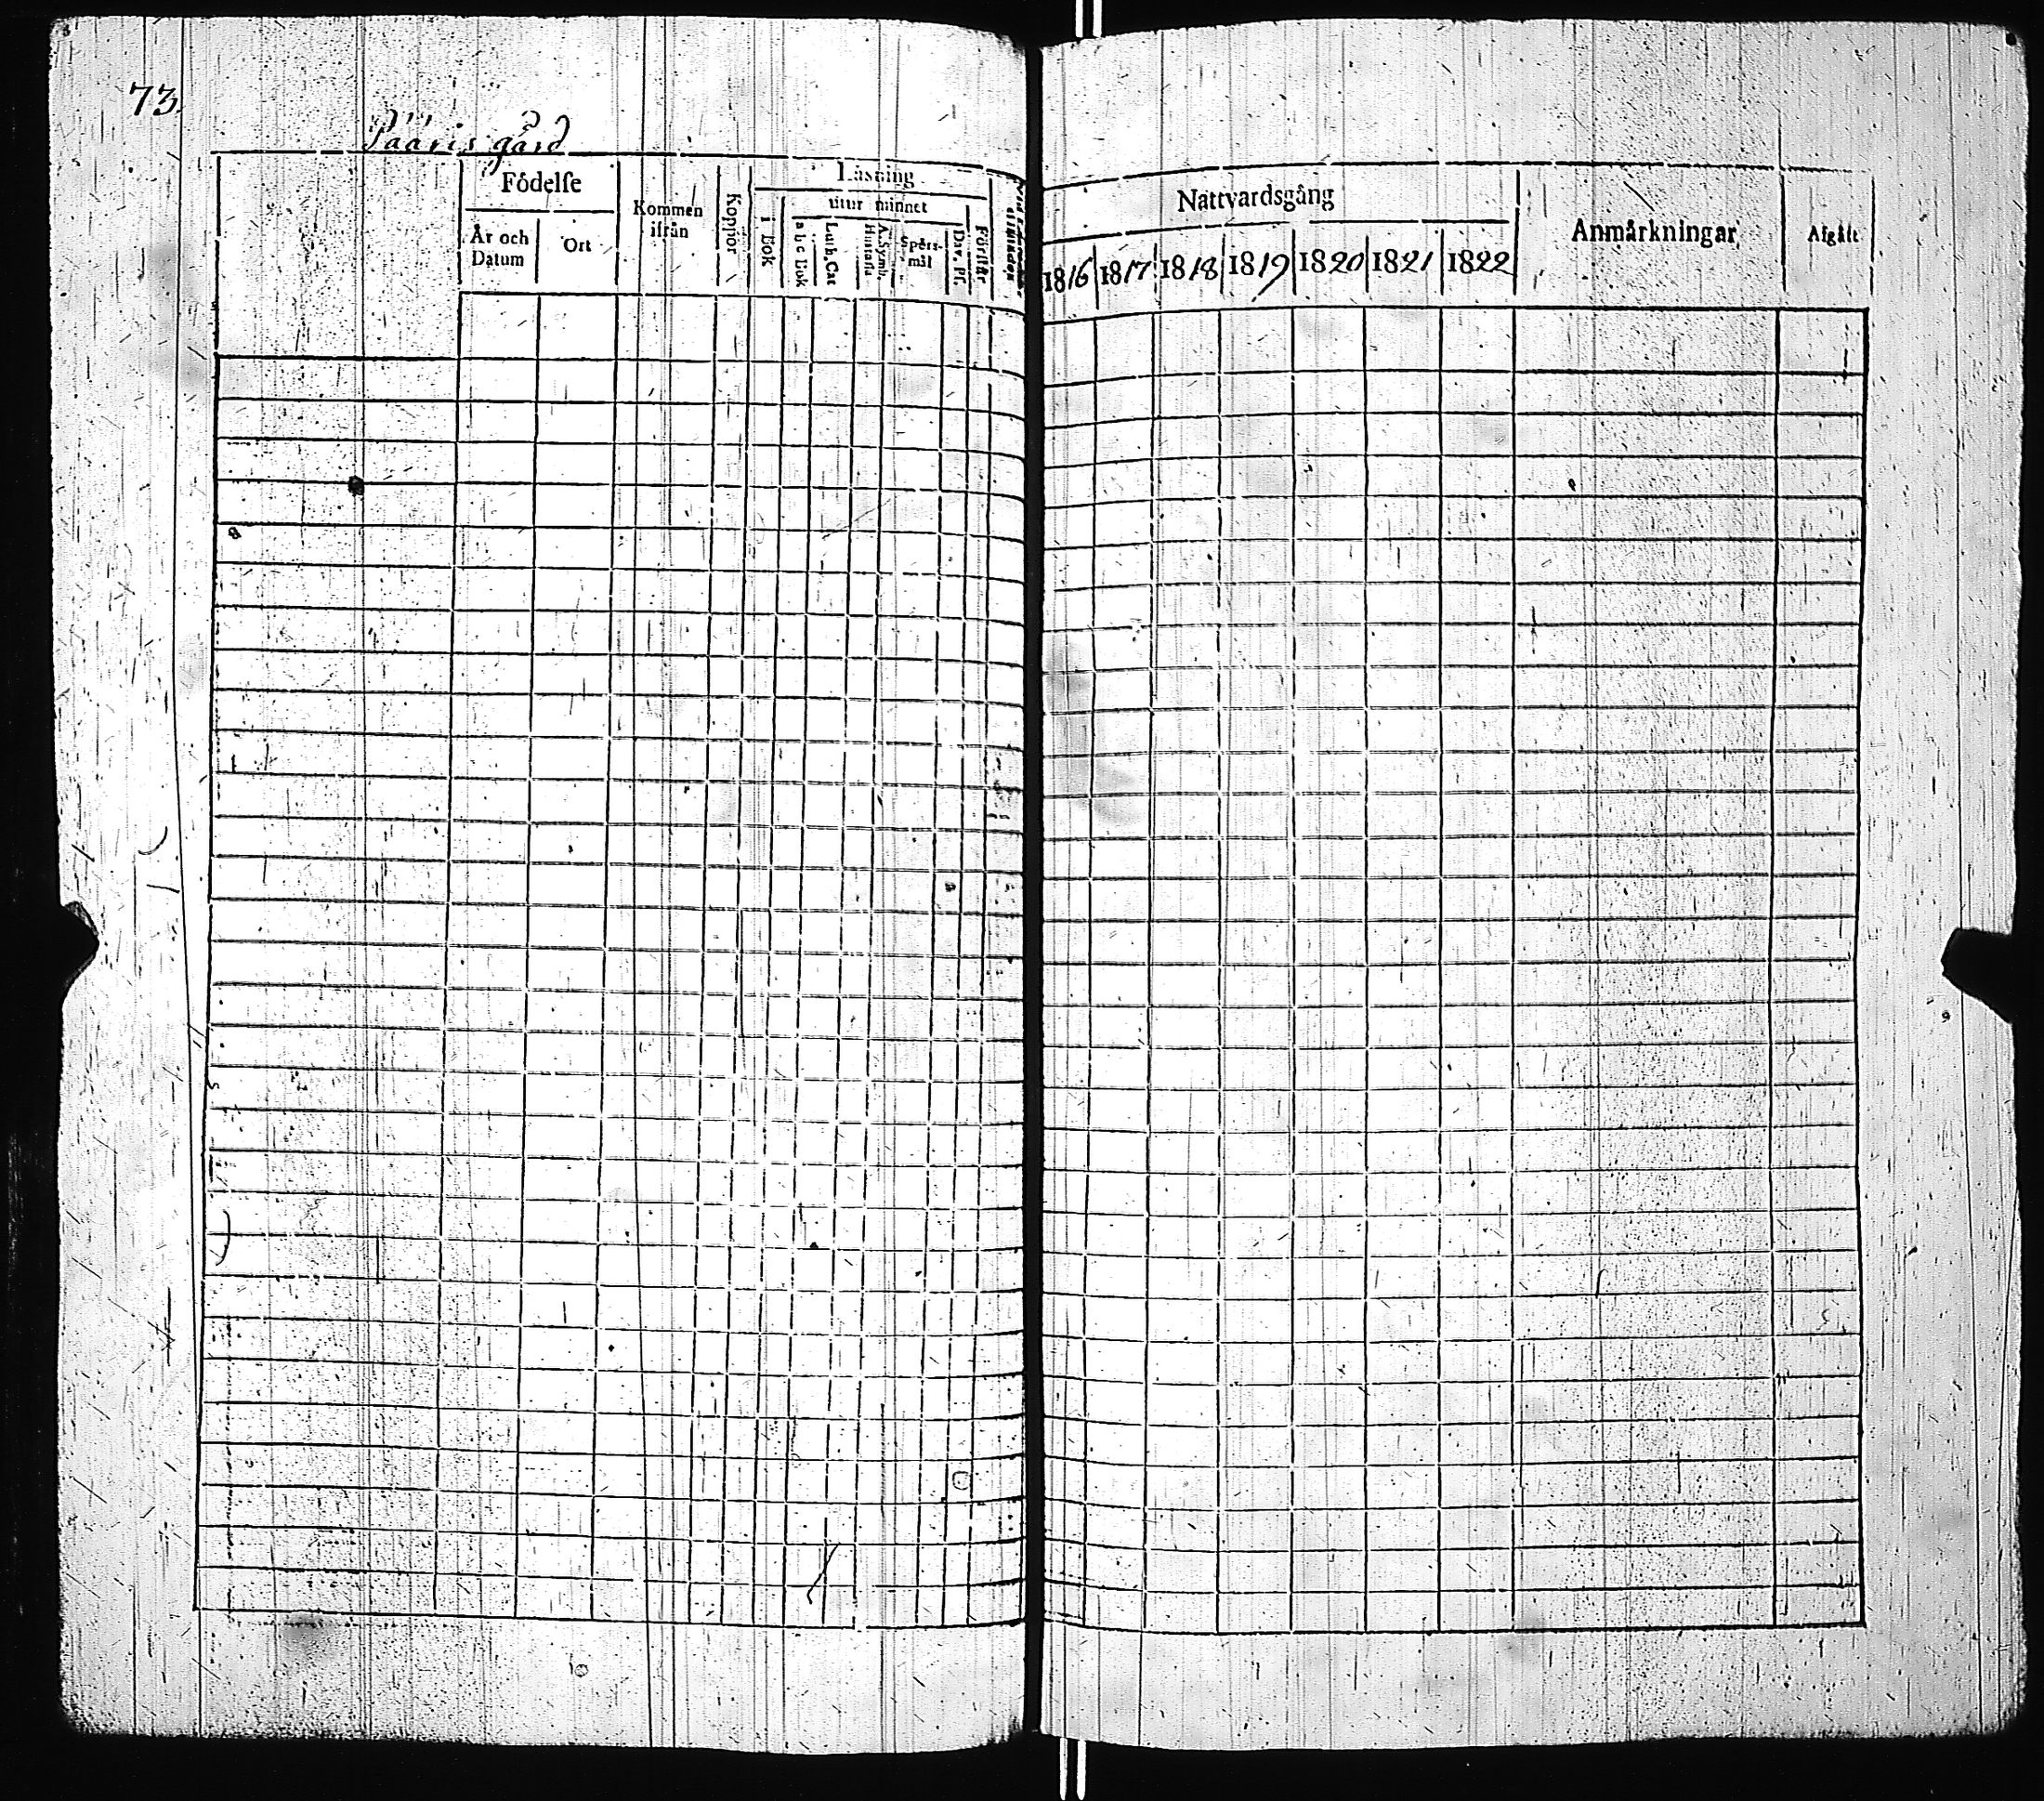 73.
Pääris gård
Födelse
År och Datum
Ort
Kommen ifrån
Koppor
Läsning
i Bok
utur minnet
a b c Bok
Luth. Cat
A. Symb. Hustafla
Spörs-mål
Dav. Ps.
Förstår
Nattvardsgång
1816 1817 1818 1819 1820 1821 1822
Anmärkningar
Afgått